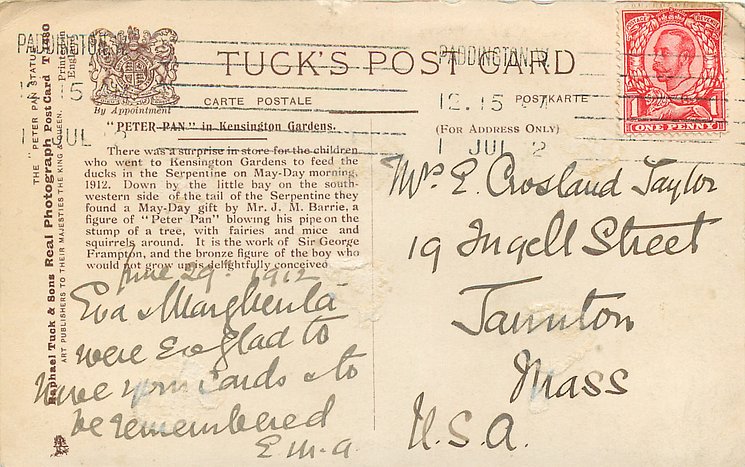 PADDINGTON. W
PADDINGTON. W
TUCK'S POST CARD
By Appointment
CARTE POSTALE
POSTKARTE
12.15
(FOR ADDRESS ONLY)
1 JUL 2
ONE PENNY
"PETER PAN" in Kensington Gardens.
There was a surprise in store for the children
who went to Kensington Gardens to feed the
ducks in the Serpentine on May-Day morning,
1912. Down by the little bay on the south-
western side of the tail of the Serpentine they
found a May-Day gift by Mr. J. M. Barrie, a
figure of "Peter Pan" blowing his pipe on the
stump of a tree, with fairies and mice and
squirrels around. It is the work of Sir George
Frampton, and the bronze figure of the boy who
would not grow up is delightfully conceived
June 29. 1912
Eva & Margherita
were so glad to
have your cards & to
be remembered
E.M.A.
Mrs E. Crosland Taylor
19 Ingell Street
Taunton
Mass
U.S.A.
THE "PETER PAN STATUE"
Raphael Tuck & Sons Real Photograph Post Card T 1480
ART PUBLISHERS TO THEIR MAJESTIES THE KING & QUEEN.
Printed in
England